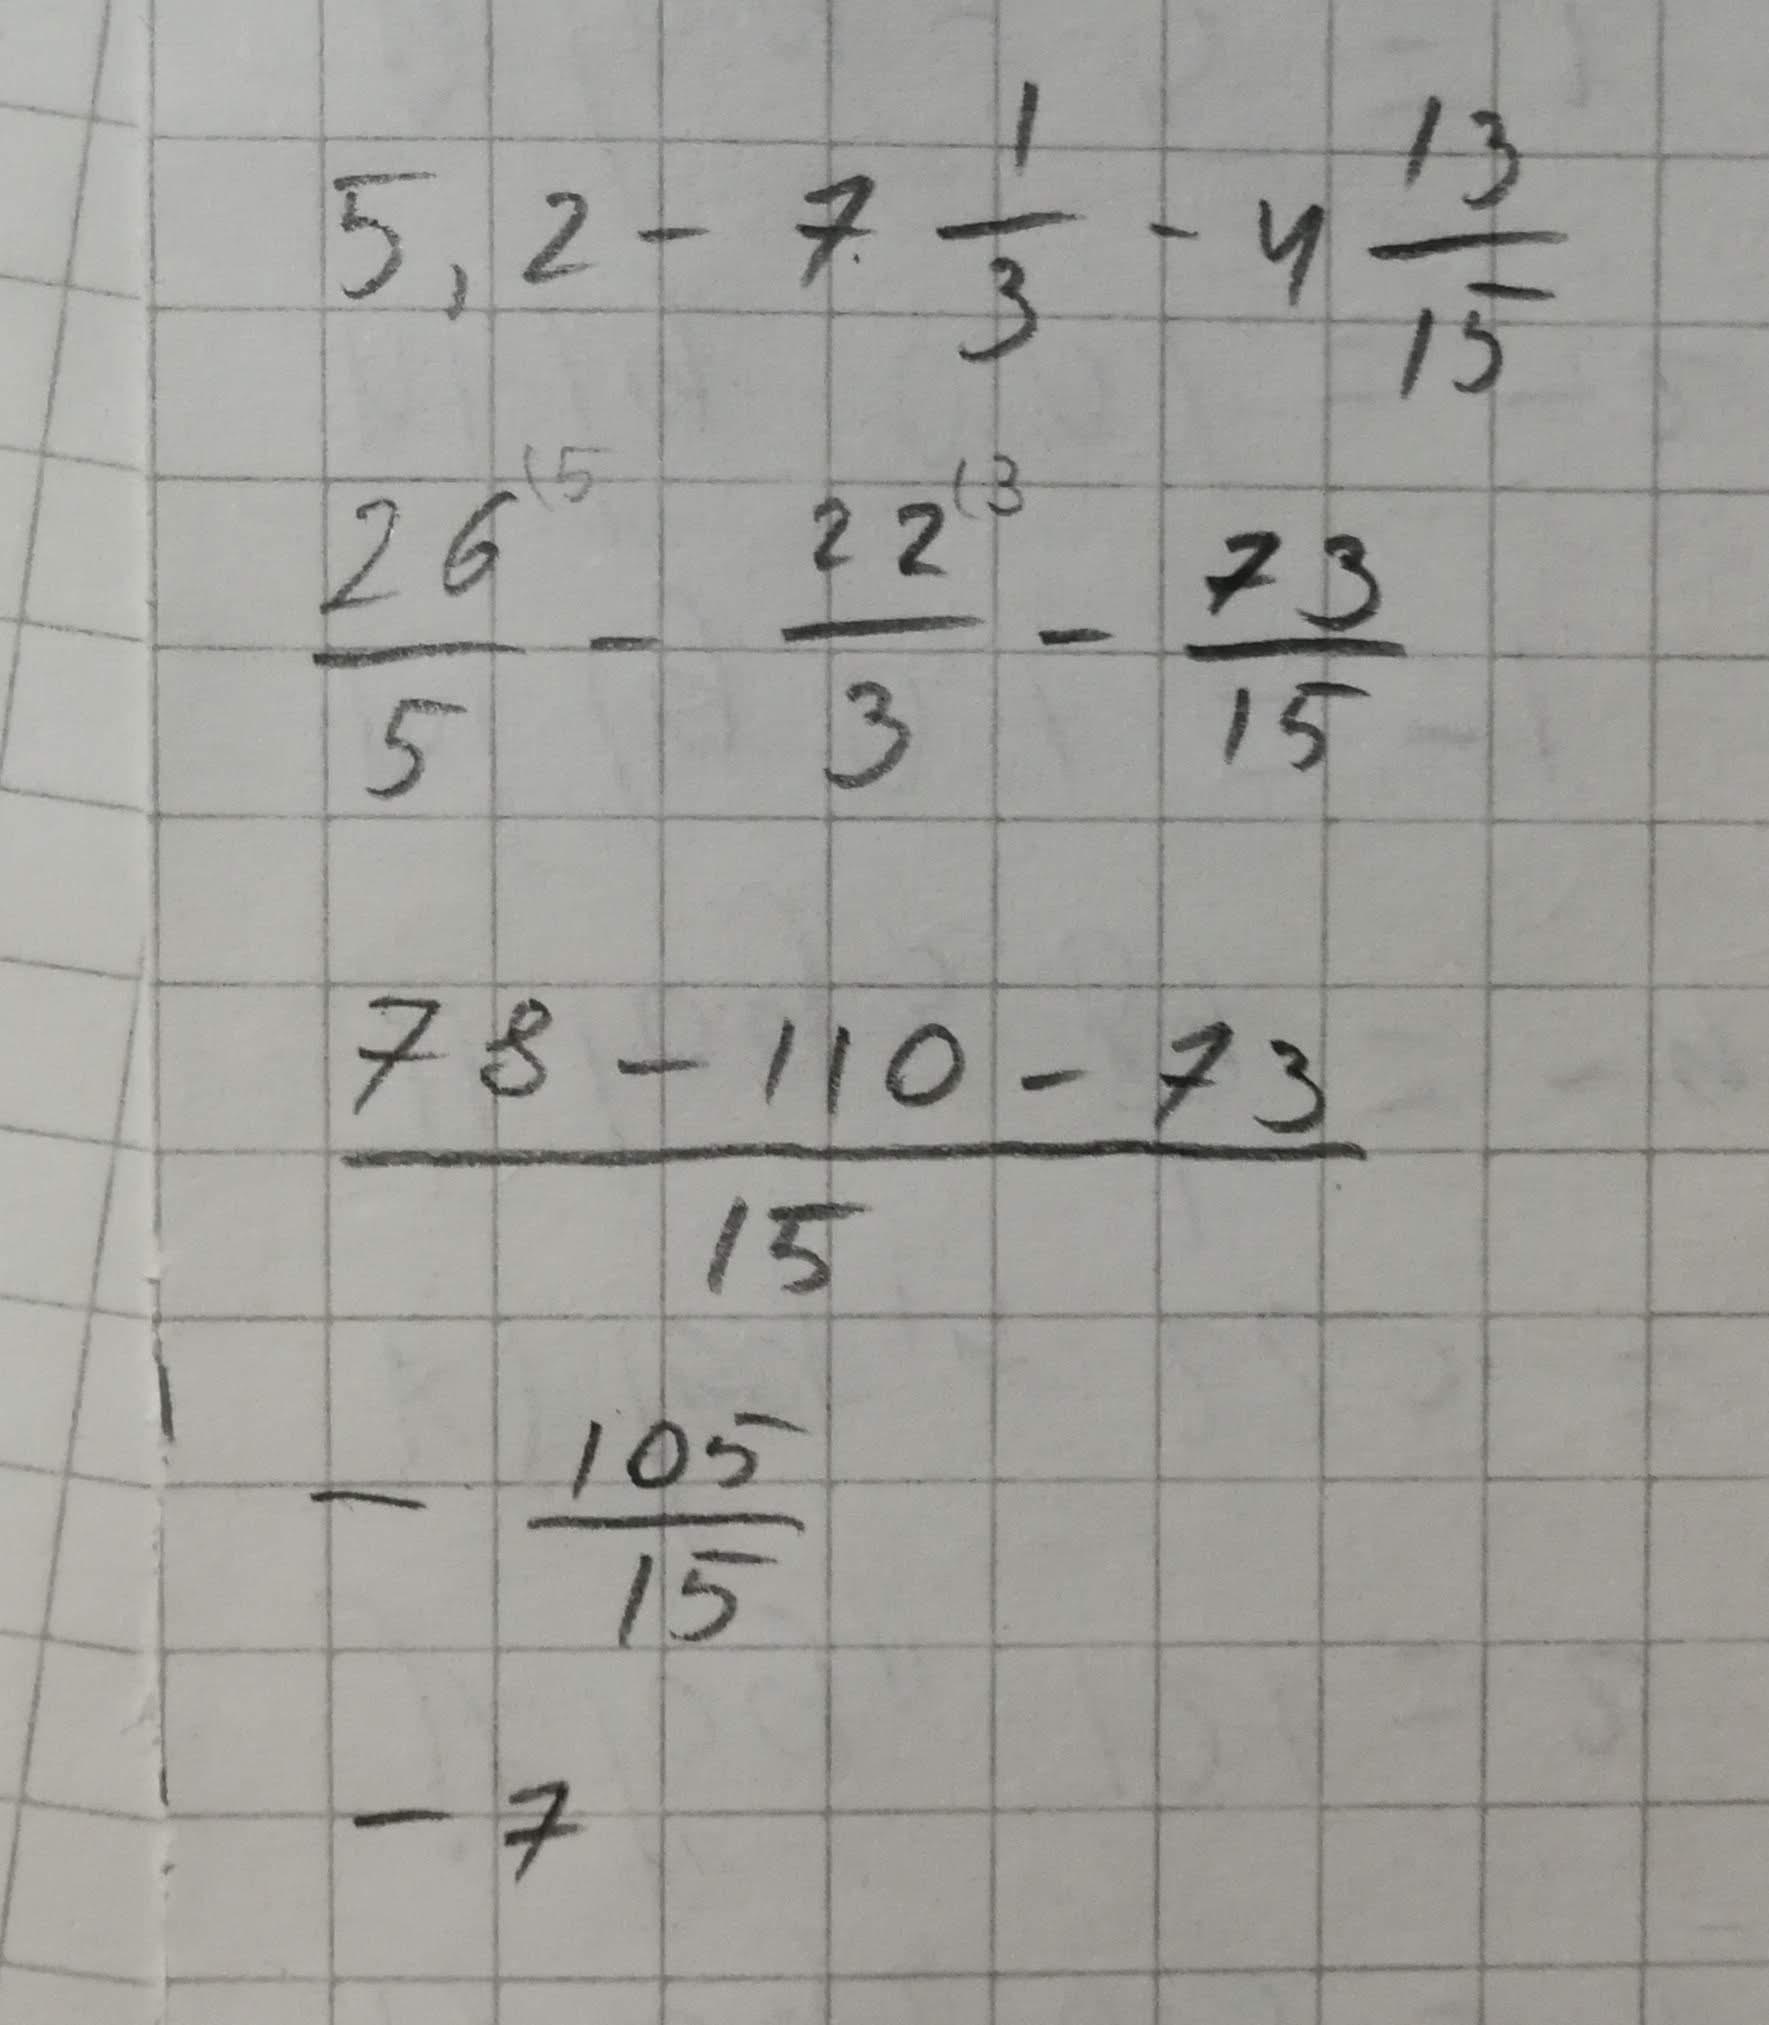 5,2 - 7 1/3 - 4 13/15
26(5/5 - 22(3/3 - 73/15
78 - 110 - 73/15
- 105/15
- 7